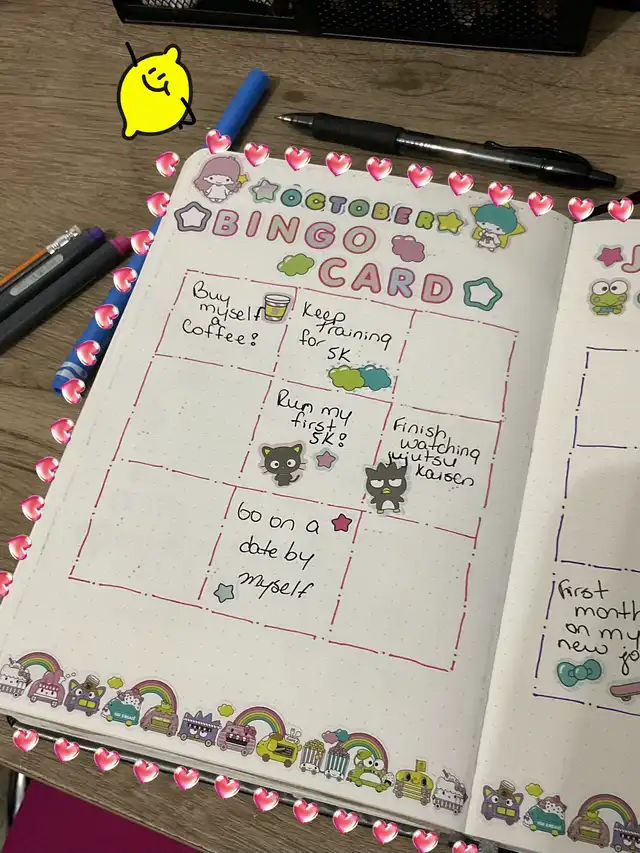 OCTOBER
BINGO
CARD
Buy
myself
a
Coffee!
Keep
training
for
5K
Run my
first
5K!
Finish
watching
jujutsu
Kaisen
Go on a
date by
myself
First
month
on my
new jo